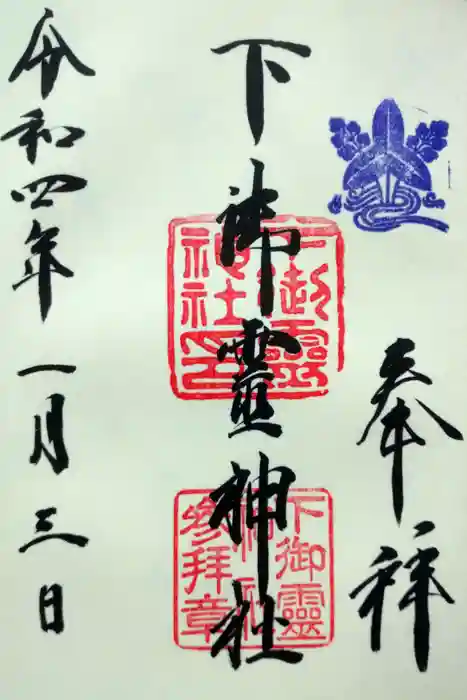 奉拝
下御靈神社
下御靈
神社印
下御靈
神社
参拜章
令和四年一月三日